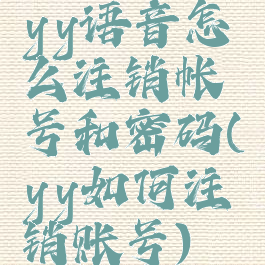 yy语音怎
么注销帐
号和密码(
yy如何注
销账号)